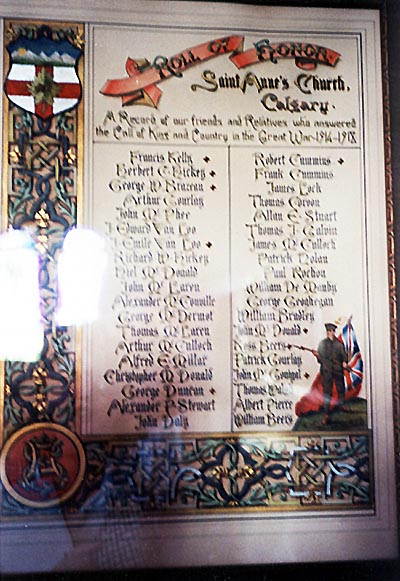 ROLL OF HONOR
Saint Anne's Church,
Calgary.
A Record of our friends and Relatives who answered
the Call of King and Country in the Great War-1914-1918
Francis Kelly +
Herbert C. Hickey +
George W. Brazeau +
Arthur Gourlay
John McPhee
J. Edward Van Loo
J. Emile Van Loo +
Richard W. Hickey
Niel McDonald
John McLaren
Alexander McConville
George McDermot
Thomas McLaren
Arthur McCulloch
Alfred E. Millar
Christopher McDonald
George Duncan +
Alexander P. Stewart
John Daly
Robert Cummins +
Frank Cummins
James Lock
Thomas
Allan E. Stuart
Thomas J. Galvin
James McCulloch
Patrick Nolan
Paul Rochon
William De Manby
George Geoghegan
William Bradley
John McDonald +
Ross Beers +
Patrick Gourlay
John McGonigal +
Thomas
Albert Pierre
William Beers